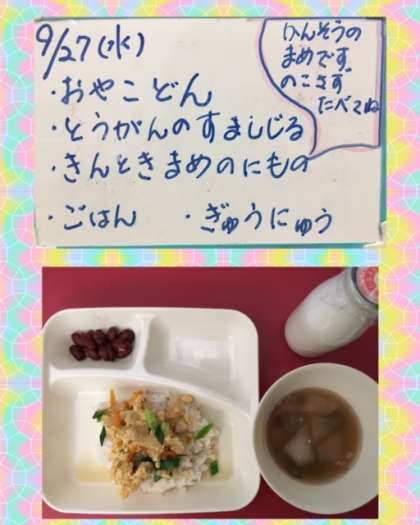 9/27(水)
・おやこどん
・とうがんのすましじる
・きんときまめのにもの
・ごはん ・ぎゅうにゅう
けんそうの
まめです
のこさず
たべてね